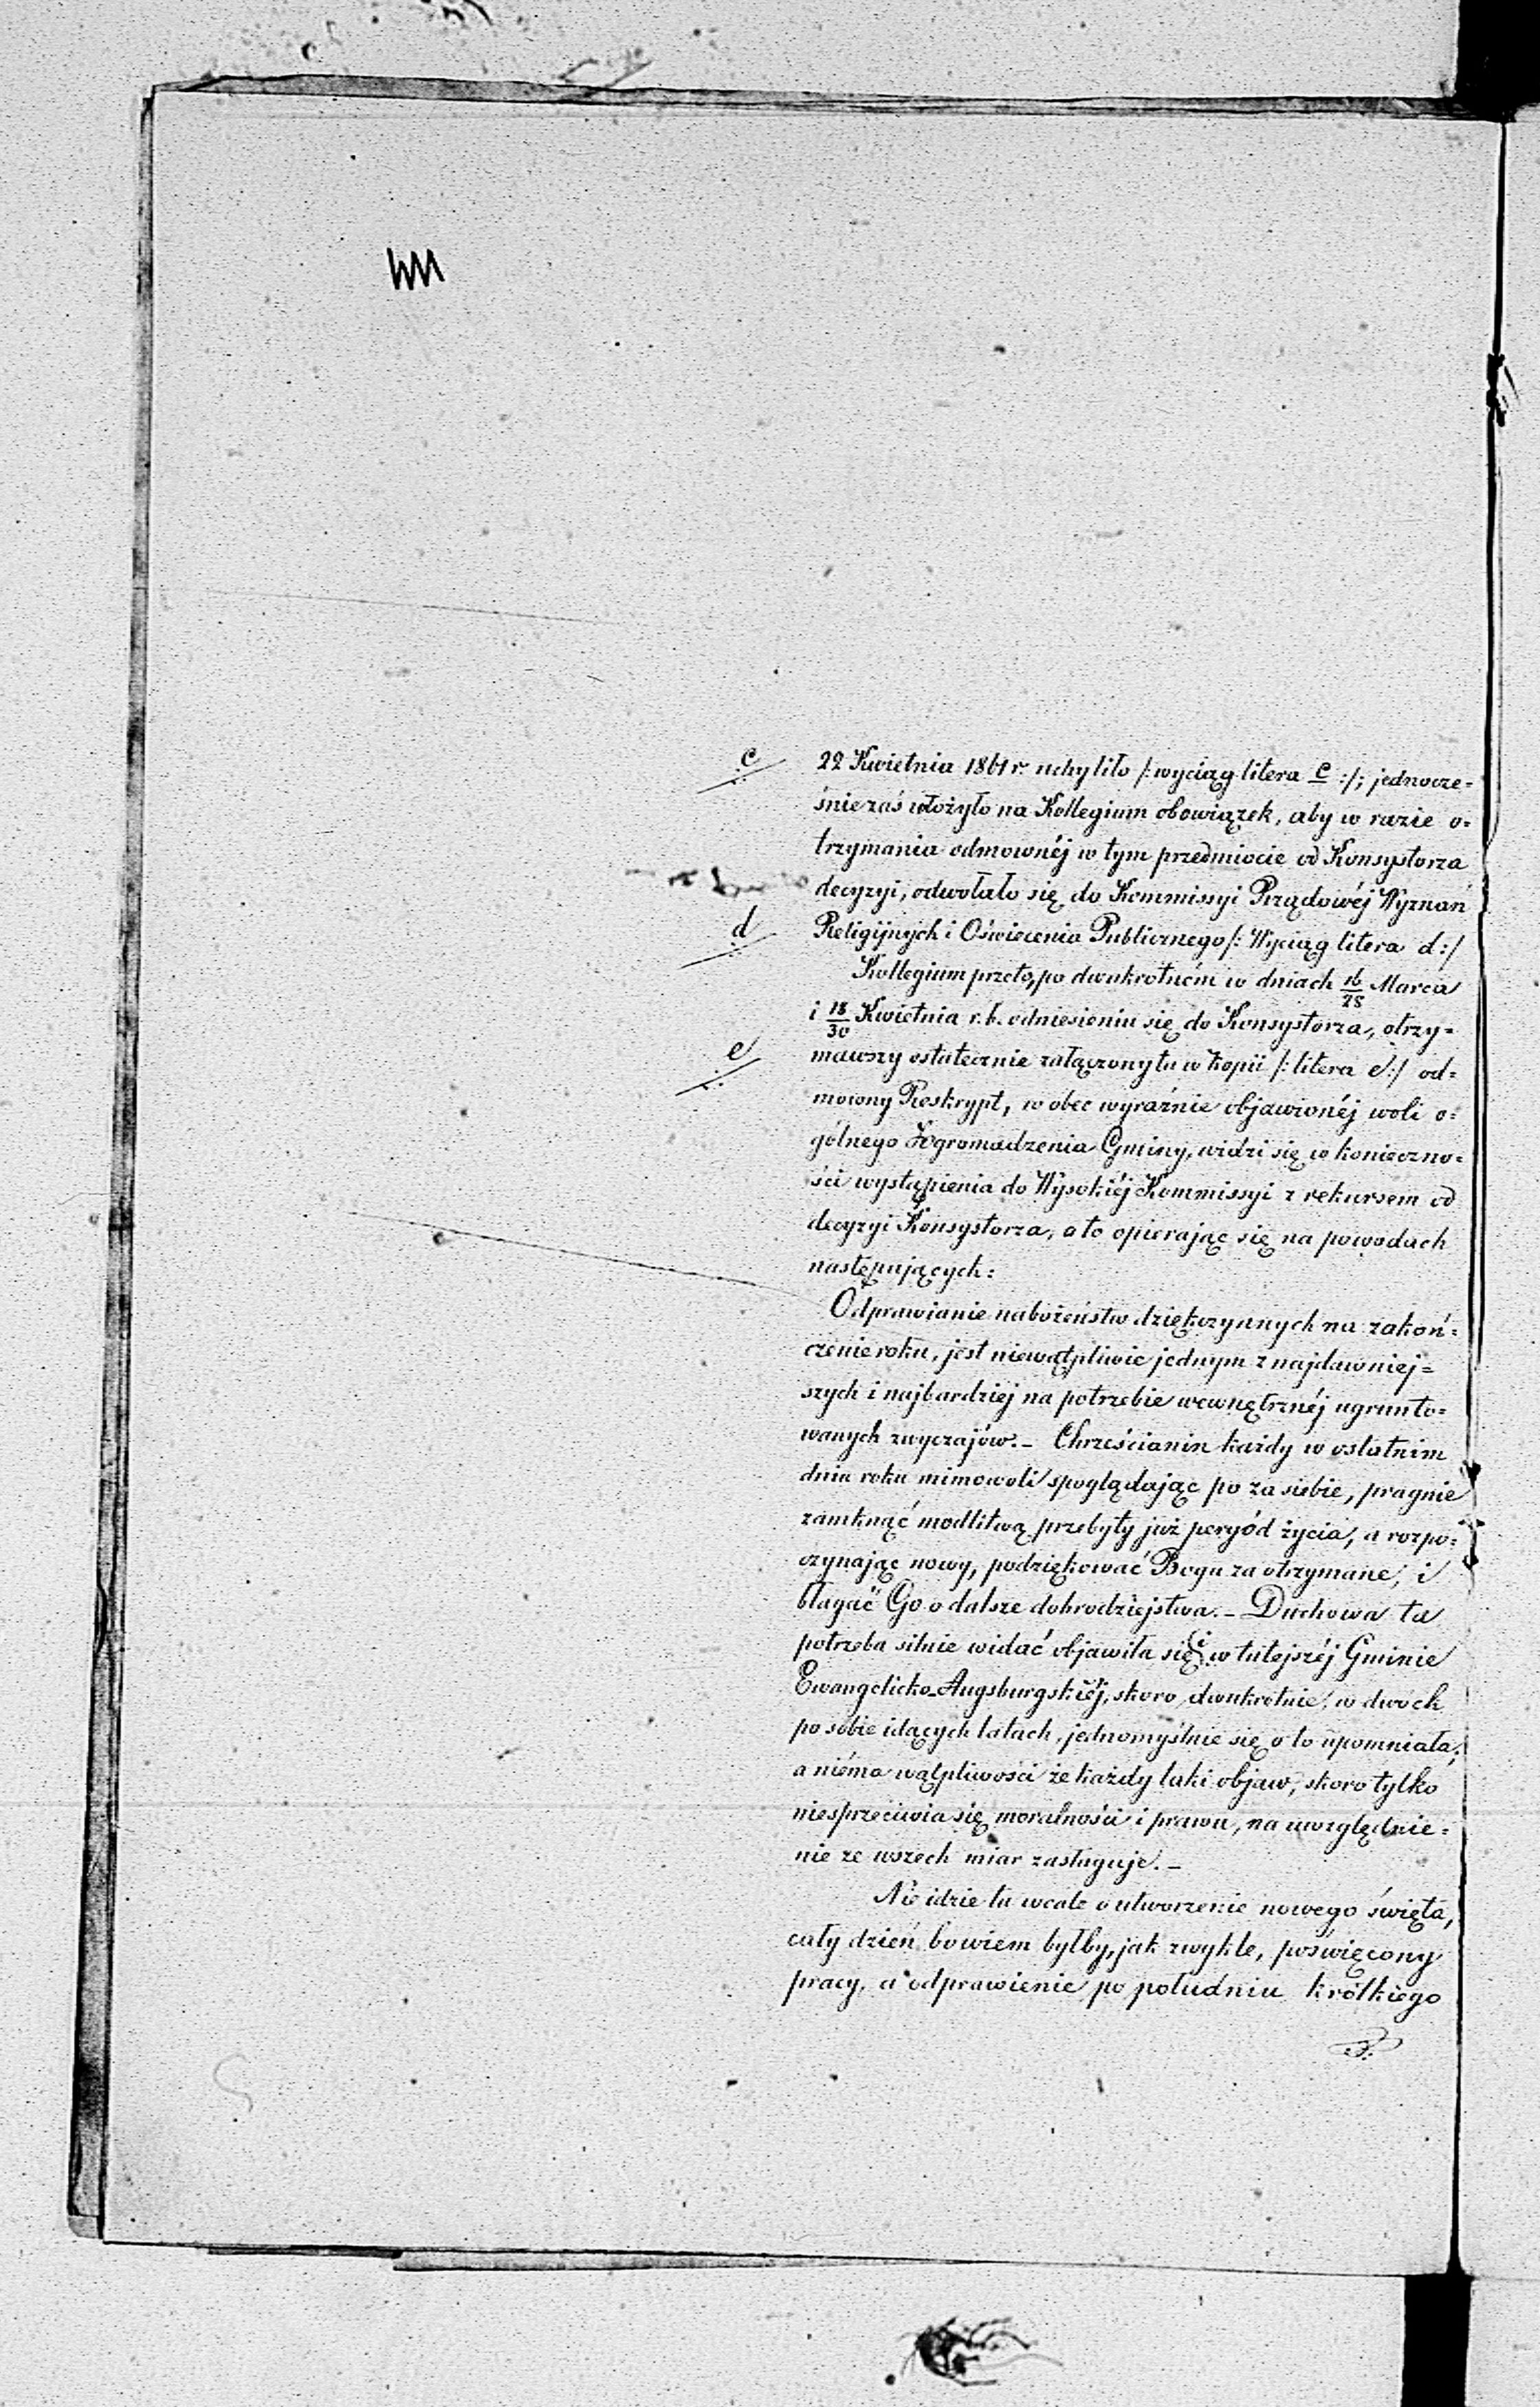 c
22 Kwietnia 1861 r. uchyliło /: wyciąg litera c :/; jednocze=
śnie zaś włożyło na Kollegium obowiązek, aby w razie o=
trzymania odmownéj w tym przedmiocie od Konsystorza
decyzyi, odwołało się do Kommissyi Rządowéj Wyznań
d
Religijnych i Oświecenia Publicznego /: Wyciąg litera d :/
Kollegium przeto, po dwukrotném w dniach 16/28 Marca
i 18/30 Kwietnia r. b. odniesieniu się do Konsystorza, otrzy=
e
mawszy ostatecznie załączony tu w kopii /: litera e :/ od=
mowny Reskrypt, w obec wyraźnie objawionéj woli o=
gólnego Zgromadzenia Gminy, widzi się w konieczno=
ści wystąpienia do Wysokiéj Kommissyi z rekursem od
decyzyi Konsystorza, a to opierając się na powodach
następujących:
Odprawianie nabożeństw dziękczynnych na zakoń=
czenie roku, jest niewątpliwie jednym z najdawniej=
szych i najbardziéj na potrzebie wewnętrznéj ugrunto=
wanych zwyczajów. – Chrześcianin każdy w ostatnim
dniu roku mimowoli spoglądając po za siebie, pragnie
zamknąć modlitwą przebyty już peryód życia, a rozpo=
czynając nowy, podziękować Bogu za otrzymane, i
błagać Go o dalsze dobrodziejstwa. – Duchowa ta
potrzeba silnie widać objawiła się i w tutejszéj Gminie
Ewangelicko-Augsburgskiéj, skoro dwukrotnie, w dwóch
po sobie idących latach, jednomyślnie się o to upomniała,
a niéma wątpliwości że każdy taki objaw, skoro tylko
niesprzeciwia się moralności i prawu, na uwzględnie=
nie ze wszech miar zasługuje. –
Nie idzie tu wcale o utworzenie nowego święta,
cały dzień bowiem byłby, jak zwykle, poświęcony
pracy, a odprawienie po południu krótkiego